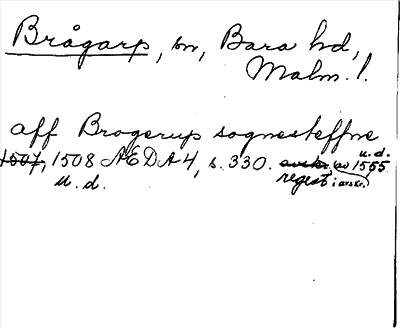 Brågarp, sn, Bara hd,
Malm. l.
aff Brogerup sognesteffne
1507, 1508 ÆDA 4, s. 330. avskr. av 1555
u. d.
u. d.
regest i avskr.